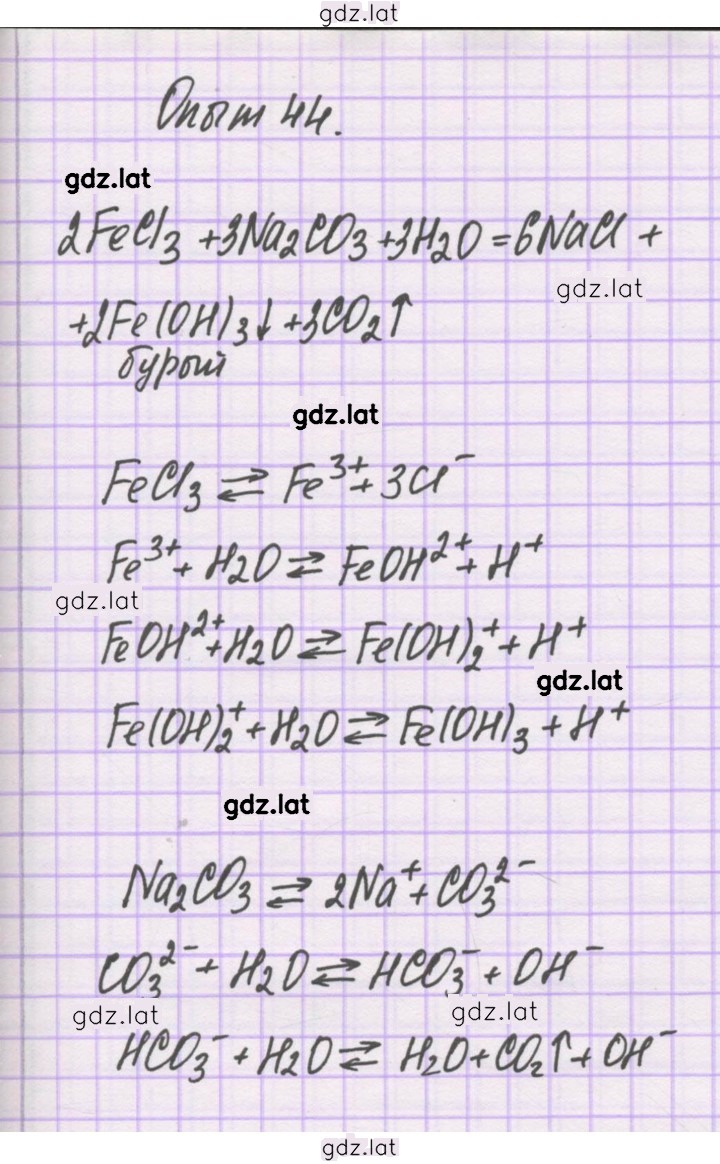 gdz.lat
Опыт 44.
gdz.lat
2FeCl₃ + 3Na₂CO₃ + 3H₂O = 6NaCl +
gdz.lat
+ 2Fe(OH)₃↓ + 3CO₂↑
бурый
gdz.lat
FeCl₃ ⇄ Fe³⁺ + 3Cl⁻
Fe³⁺ + H₂O ⇄ FeOH²⁺ + H⁺
gdz.lat
FeOH²⁺ + H₂O ⇄ Fe(OH)₂⁺ + H⁺
gdz.lat
Fe(OH)₂⁺ + H₂O ⇄ Fe(OH)₃ + H⁺
gdz.lat
Na₂CO₃ ⇄ 2Na⁺ + CO₃²⁻
CO₃²⁻ + H₂O ⇄ HCO₃⁻ + OH⁻
gdz.lat gdz.lat
HCO₃⁻ + H₂O ⇄ H₂O + CO₂↑ + OH⁻
gdz.lat